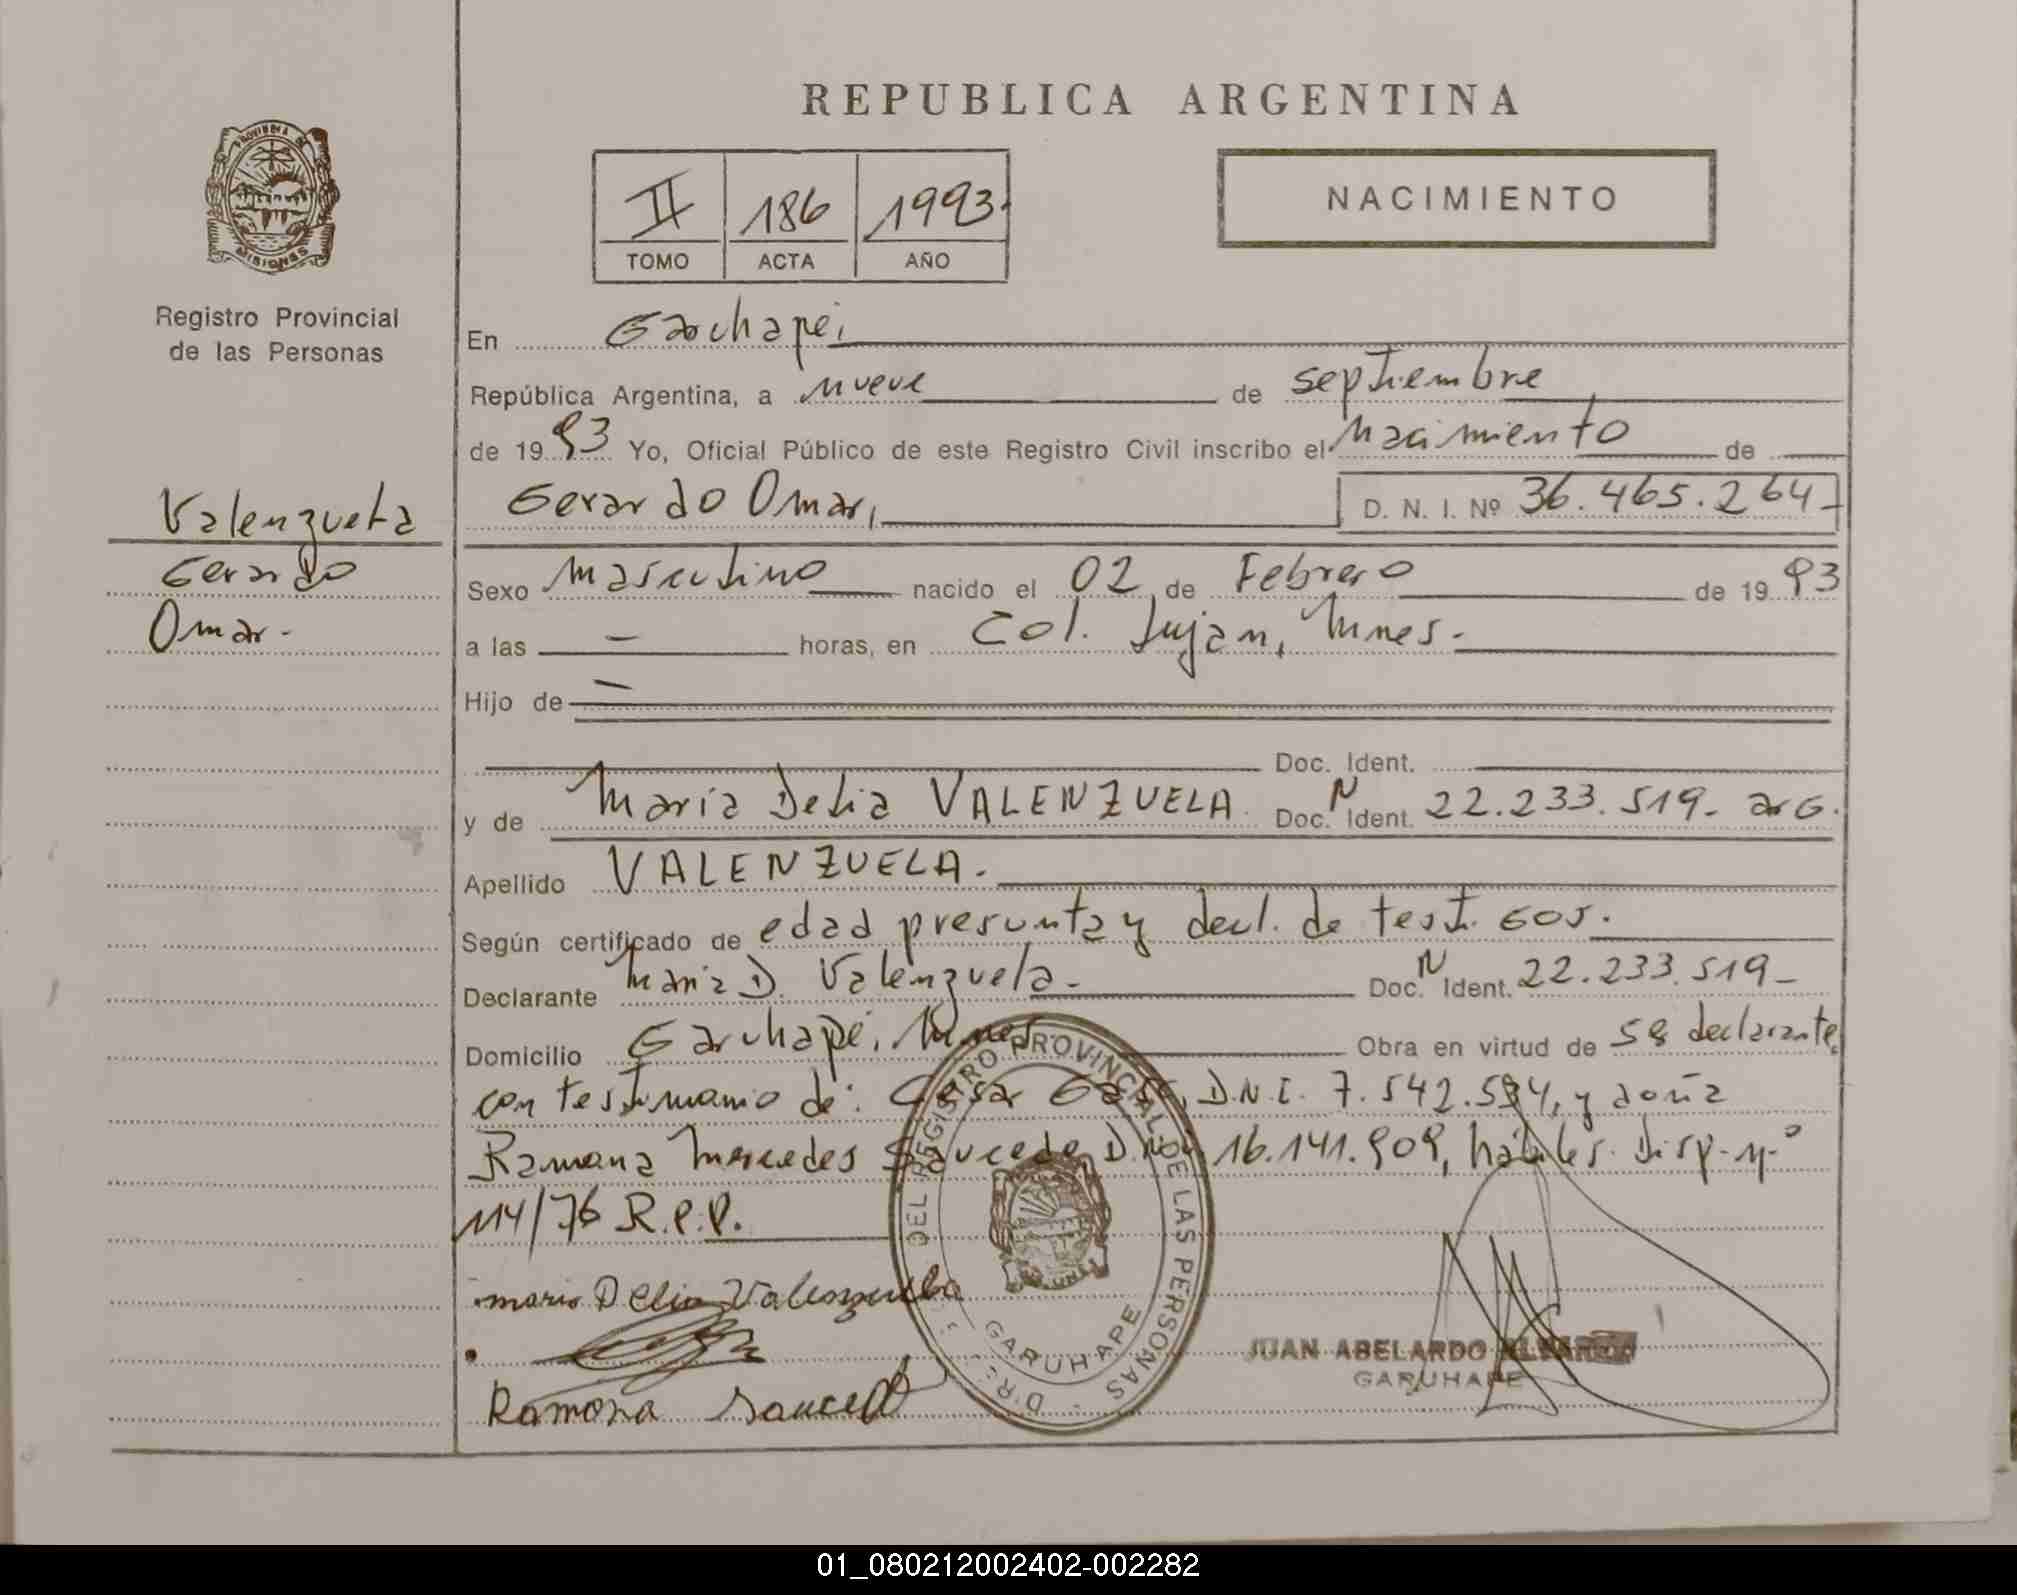 REPUBLICA ARGENTINA
PROVINCIA DE
MISIONES
Registro Provincial
de las Personas
II 186 1993.
TOMO ACTA AÑO
NACIMIENTO
En Garuhapé,
República Argentina, a nueve de septiembre
de 1993 Yo, Oficial Público de este Registro Civil inscribo el Nacimiento de
Gerardo Omar, D. N. I. Nº 36.465.264-
Valenzuela
Gerardo
Omar.-
Sexo Masculino nacido el 02 de Febrero de 1993
a las — horas, en Col. Lujan, Mnes.-
Hijo de —
Doc. Ident.
y de María Delia VALENZUELA. Doc. N Ident. 22.233.519- arg.
Apellido VALENZUELA.
Según certificado de edad presunta y decl. de testigos.
Declarante María D. Valenzuela.- Doc. N Ident. 22.233.519-
Domicilio Garuhapé, Mnes Obra en virtud de ss declarante,
con testimonio de: Cesar D.N.I. 7.542. y doña
Ramona Mercedes Saucedo D.N.I. 16.141.909, hábiles. Disp. nº
114/76 R.P.P.
maria Delia Valenzuela
Ramona Saucedo
DEL REGISTRO PROVINCIAL DE LAS PERSONAS
GARUHAPE
JUAN ABELARDO
GARUHAPE
01_080212002402-002282